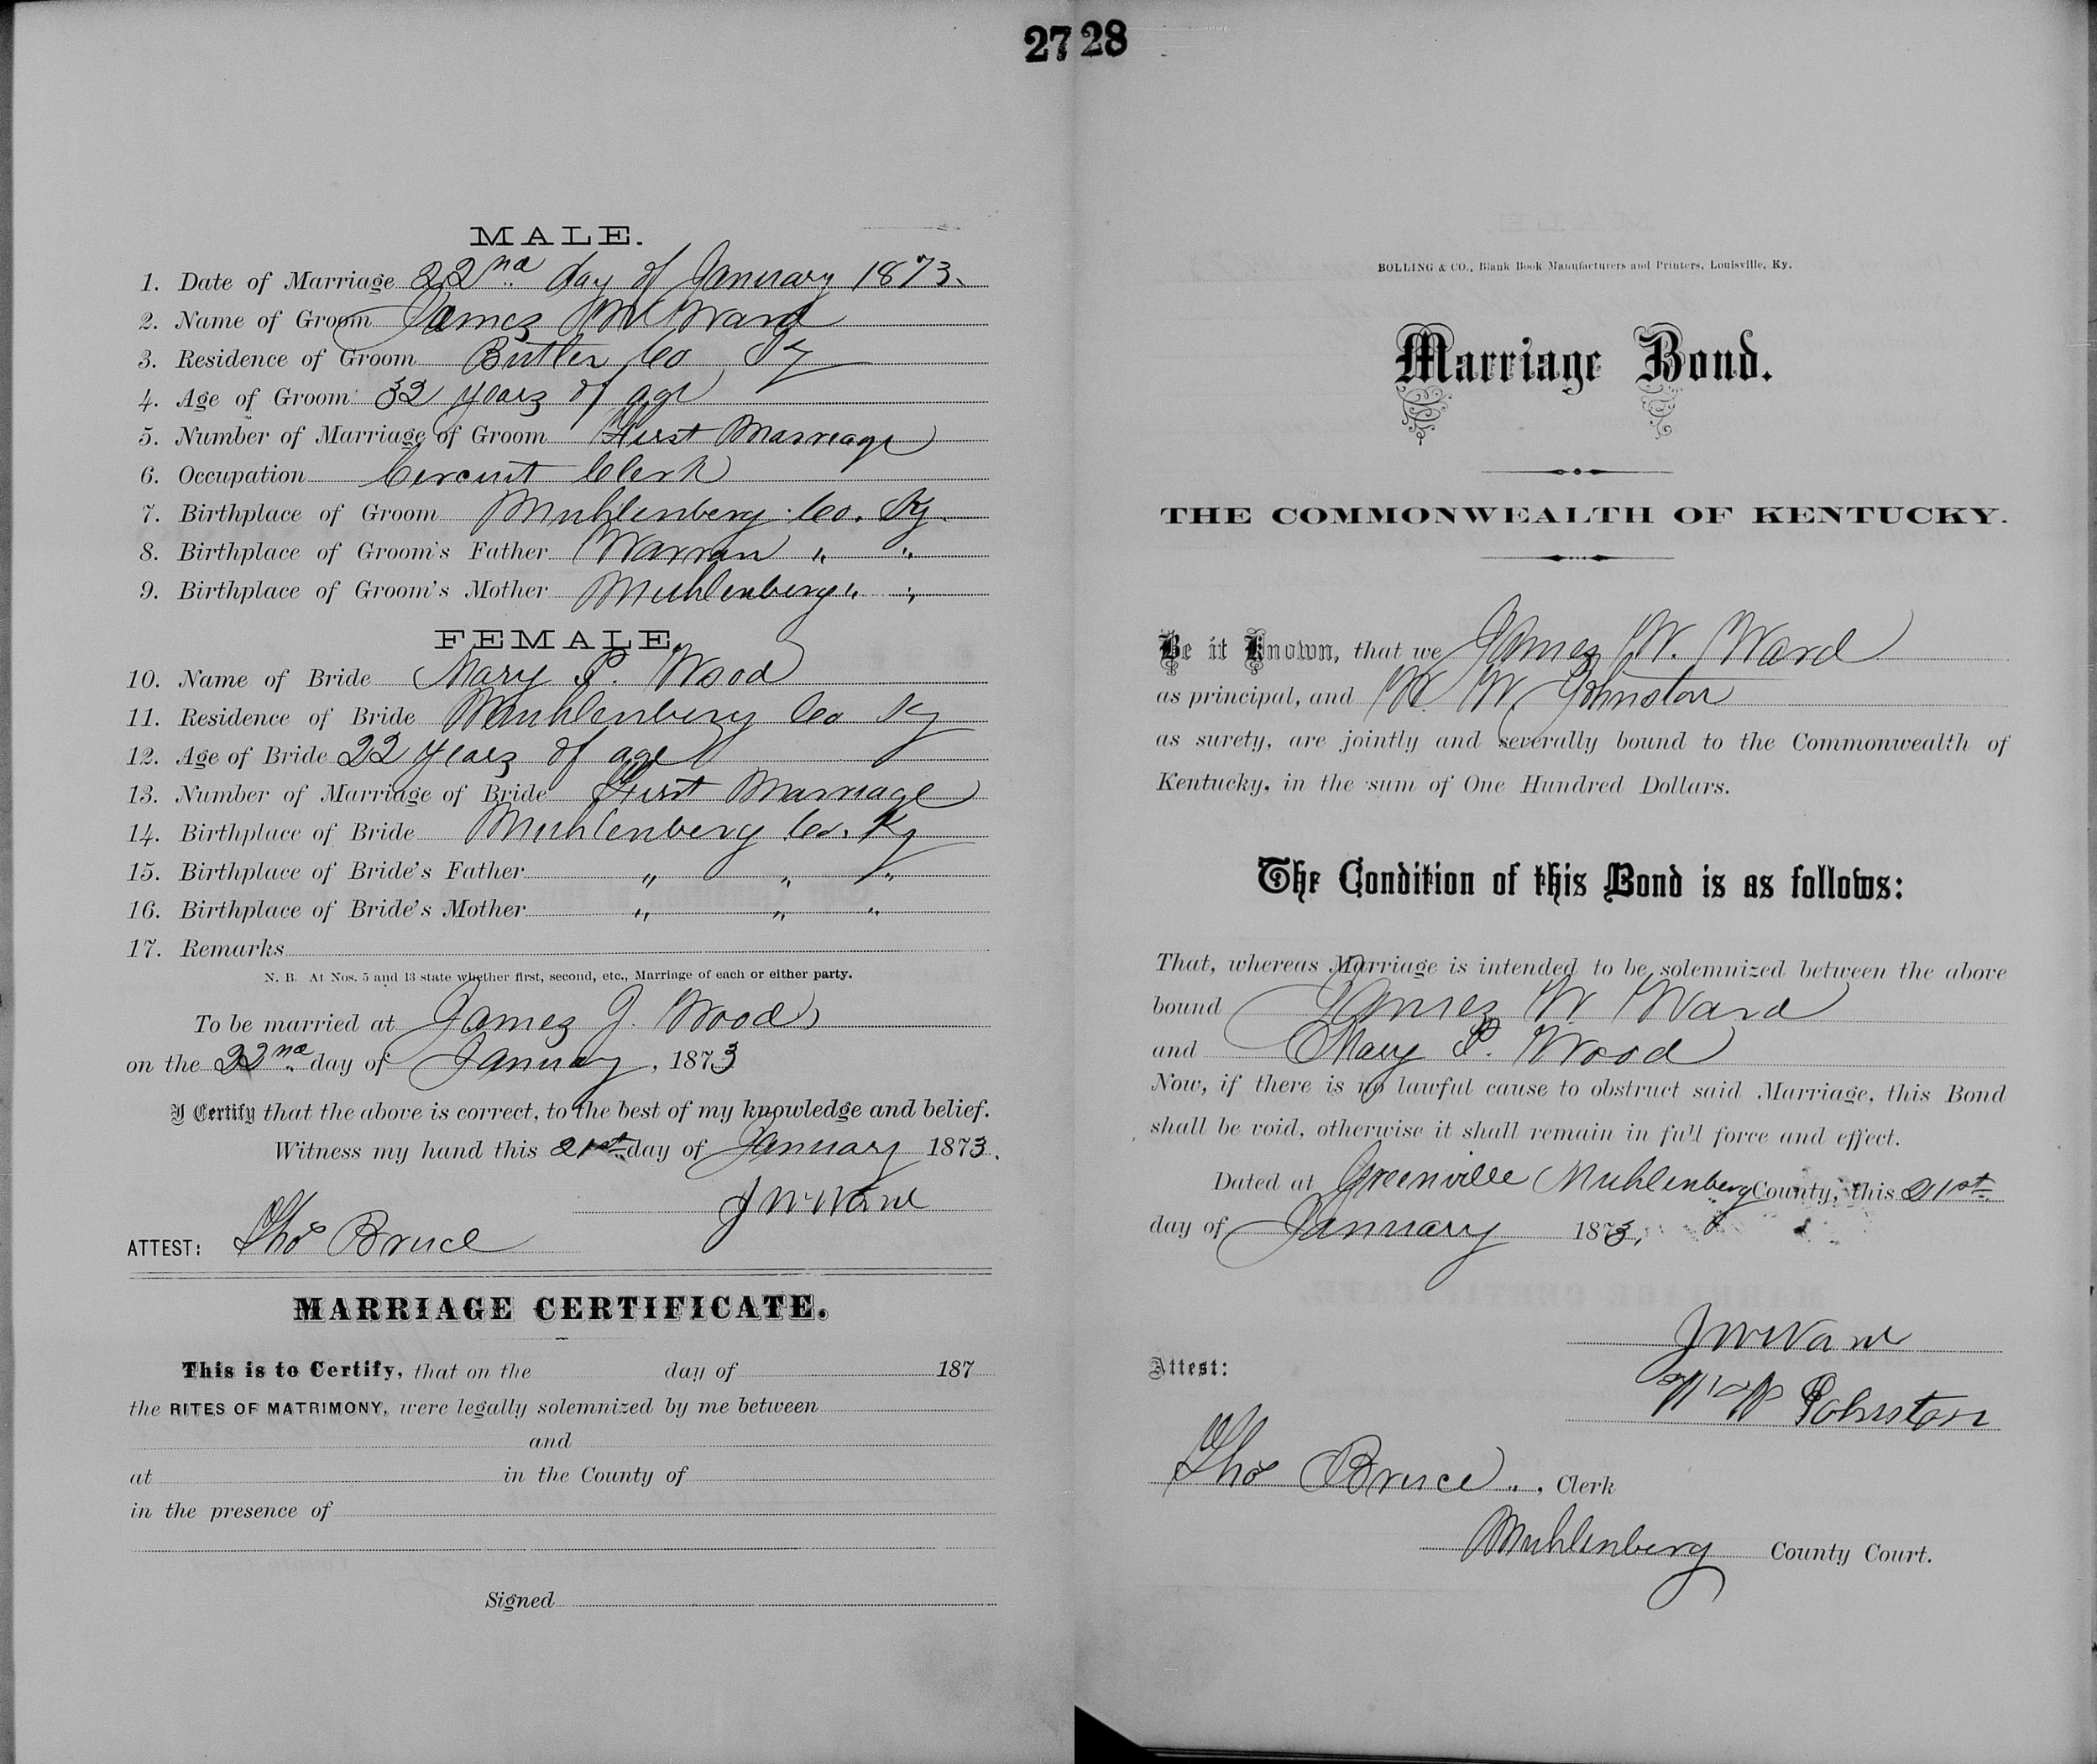 27 28
MALE.
1. Date of Marriage 22nd day of January 1873.
2. Name of Groom James W Ward
3. Residence of Groom Butler Co Ky
4. Age of Groom 32 years of age
5. Number of Marriage of Groom First Marriage
6. Occupation Circuit Clerk
7. Birthplace of Groom Muhlenberg Co. Ky.
8. Birthplace of Groom's Father Warran " "
9. Birthplace of Groom's Mother Muhlenberg " "
FEMALE.
10. Name of Bride Mary P. Wood
11. Residence of Bride Muhlenberg Co Ky
12. Age of Bride 22 years of age
13. Number of Marriage of Bride First Marriage
14. Birthplace of Bride Muhlenberg Co. Ky
15. Birthplace of Bride's Father " " "
16. Birthplace of Bride's Mother " " "
17. Remarks
N. B. At Nos. 5 and 13 state whether first, second, etc., Marriage of each or either party.
To be married at James J. Woods
on the 22nd day of January, 1873
I Certify that the above is correct, to the best of my knowledge and belief.
Witness my hand this 21st day of January 1873.
J W Ward
ATTEST: Thos Bruce
MARRIAGE CERTIFICATE.
This is to Certify, that on the day of 187
the RITES OF MATRIMONY, were legally solemnized by me between
and
at in the County of
in the presence of
Signed
BOLLING & CO., Blank Book Manufacturers and Printers, Louisville, Ky.
Marriage Bond.
THE COMMONWEALTH OF KENTUCKY.
Be it Known, that we James W. Ward
as principal, and W. W. Johnston
as surety, are jointly and severally bound to the Commonwealth of
Kentucky, in the sum of One Hundred Dollars.
The Condition of this Bond is as follows:
That, whereas Marriage is intended to be solemnized between the above
bound James W Ward
and Mary P. Wood
Now, if there is no lawful cause to obstruct said Marriage, this Bond
shall be void, otherwise it shall remain in full force and effect.
Dated at Greenville Muhlenberg County, this 21st
day of January 1873.
J W Ward
Attest:
W W Johnston
Thos Bruce, Clerk
Muhlenberg County Court.